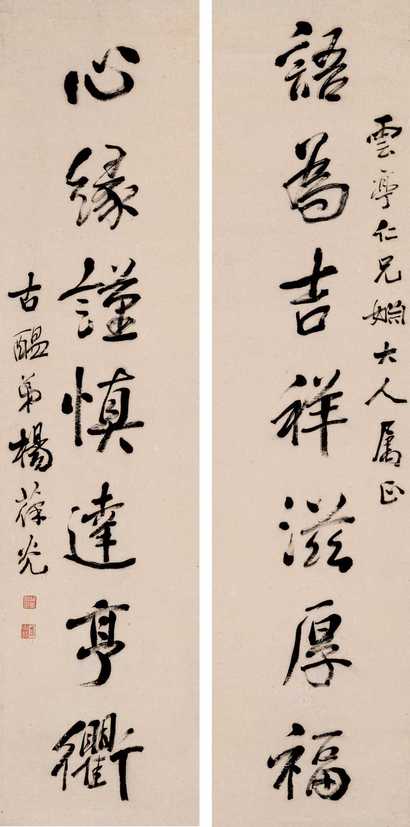 雲亭仁兄婣大人属正
語為吉祥滋厚福
心緣謹慎達亨衢
古醖弟楊葆光